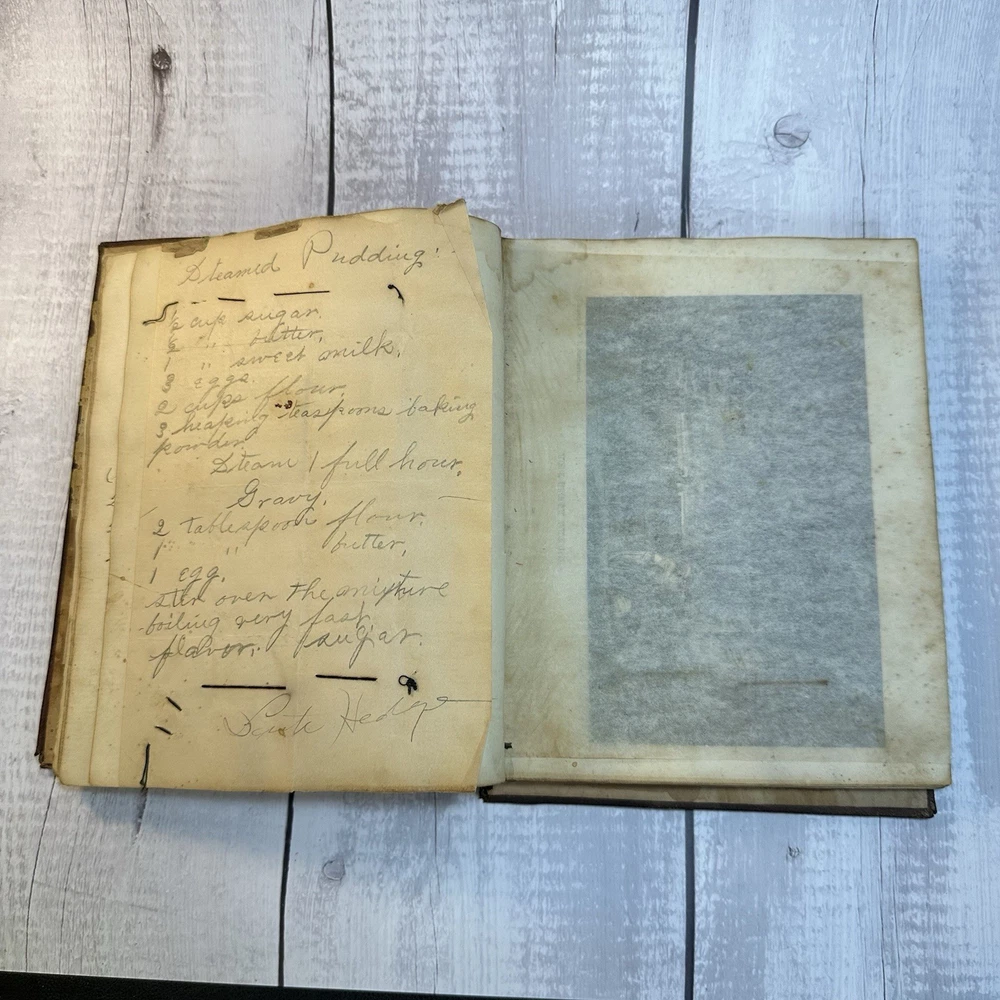 Steamed Pudding.
1/2 cup sugar.
1/2 " butter,
1 " sweet milk.
3 eggs.
2 cups flour,
3 heaping teaspoons baking
powder
Steam 1 full hour,
Gravy.
2 tablespoon flour.
1 " butter,
1 egg.
stir over the mixture
boiling very fast
flavor. sugar.